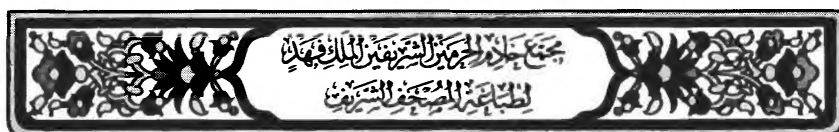 مجمع خادم الحرمين الشريفين الملك فهد
لطباعة المصحف الشريف